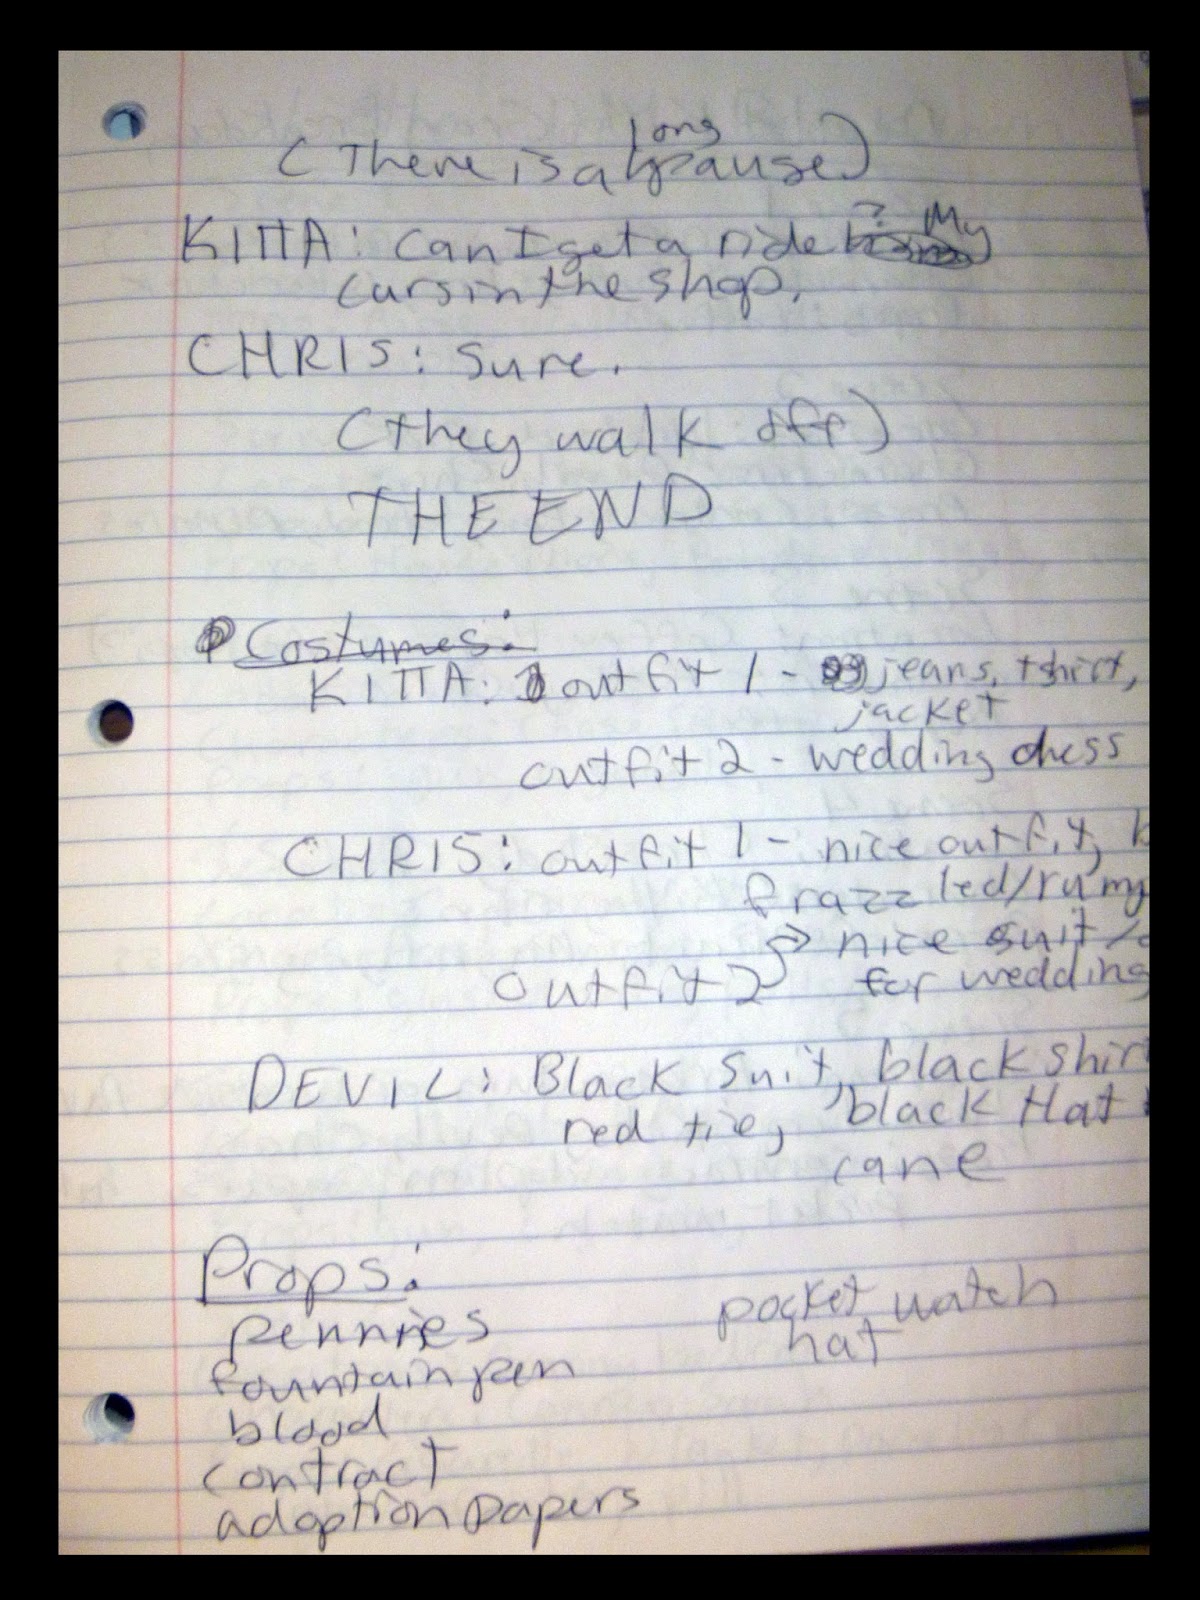 (There is a long pause)
KITTA: Can I get a ride? My
cars in the shop.
CHRIS: Sure.
(they walk off)
THE END
Costumes:
KITTA: outfit 1 - jeans, tshirt,
jacket
outfit 2 - wedding dress
CHRIS: outfit 1 - nice outfit,
frazzled/rump
→ nice suit/
outfit 2 for wedding
DEVIL: Black suit, black shir
red tie, black Hat
cane
Props:
pennies
pocket watch
hat
fountain pen
blood
contract
adoption papers